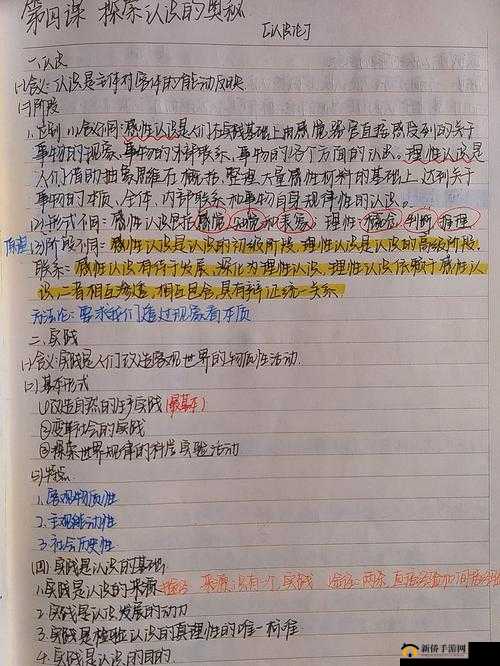 第四课 探索认识的奥秘
[认识论]
一、认识
(1)含义:认识是主体对客体的能动反映
(2)阶段
1.区别:(1)含义不同:感性认识是人们在实践基础上由感觉器官直接感受到的关于
事物的现象、事物的外部联系、事物的各个方面的认识。理性认识是
人们借助抽象思维在概括、整理大量感性材料的基础上,达到关于
事物的本质、全体、内部联系和事物自身规律性的认识。
(2)形式不同:感性认识包括感觉 知觉和表象;理性:概念 判断 推理
(3)阶段不同:感性认识是认识的初级阶段,理性认识是认识的高级阶段。
联系:感性认识有待于发展、深化为理性认识,理性认识依赖于感性认
识,二者相互渗透,相互包含,具有辩证统一关系
方法论:要求我们透过现象看本质
二、实践
(1)含义:实践是人们改造客观世界的物质性活动.
(2)基本形式
①改造自然的生产实践(最基本)
②变革社会的实践
③探索世界规律的科学实验活动
(三)特点
1.客观物质性
2.主观能动性
3.社会历史性
(四)实践是认识的基础
1.实践是认识的来源 来源只有一个 实践 途径:两条 直接经验和间接经验
2.实践是认识发展的动力
3.实践是检验认识的真理性的唯一标准
4.实践是认识的目的
新侨手游网